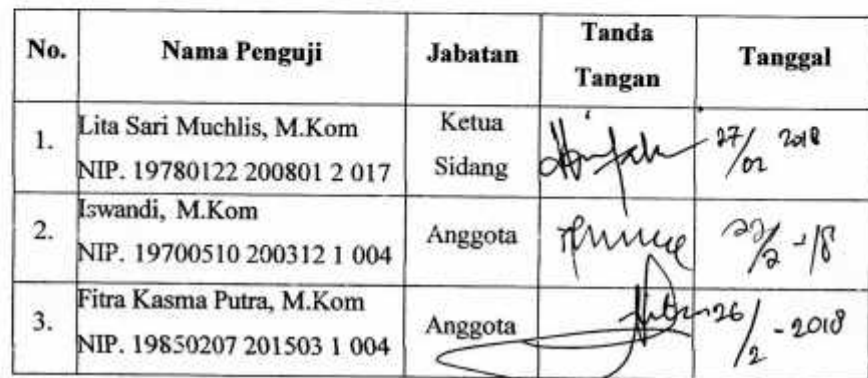 No. Nama Penguji Jabatan Tanda Tangan Tanggal
1. Lita Sari Muchlis, M.Kom Ketua
NIP. 19780122 200801 2 017 Sidang 27/02 2018
2. Iswandi, M.Kom
NIP. 19700510 200312 1 004 Anggota
3. Fitra Kasma Putra, M.Kom
NIP. 19850207 201503 1 004 Anggota 26/2 - 2018